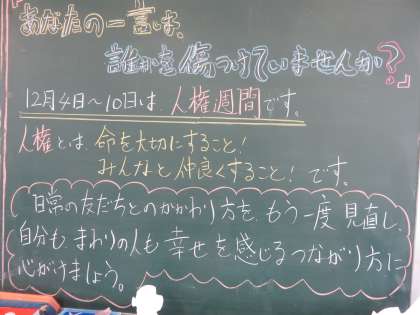 「あなたの一言は、
誰かを傷つけていませんか?」
12月4日~10日は、人権週間です。
人権とは、命を大切にすること!
みんなと仲良くすること!です。
日常の友だちとのかかわり方を、もう一度見直し、
自分も、まわりの人も幸せを感じるつながり方に
心がけましょう。